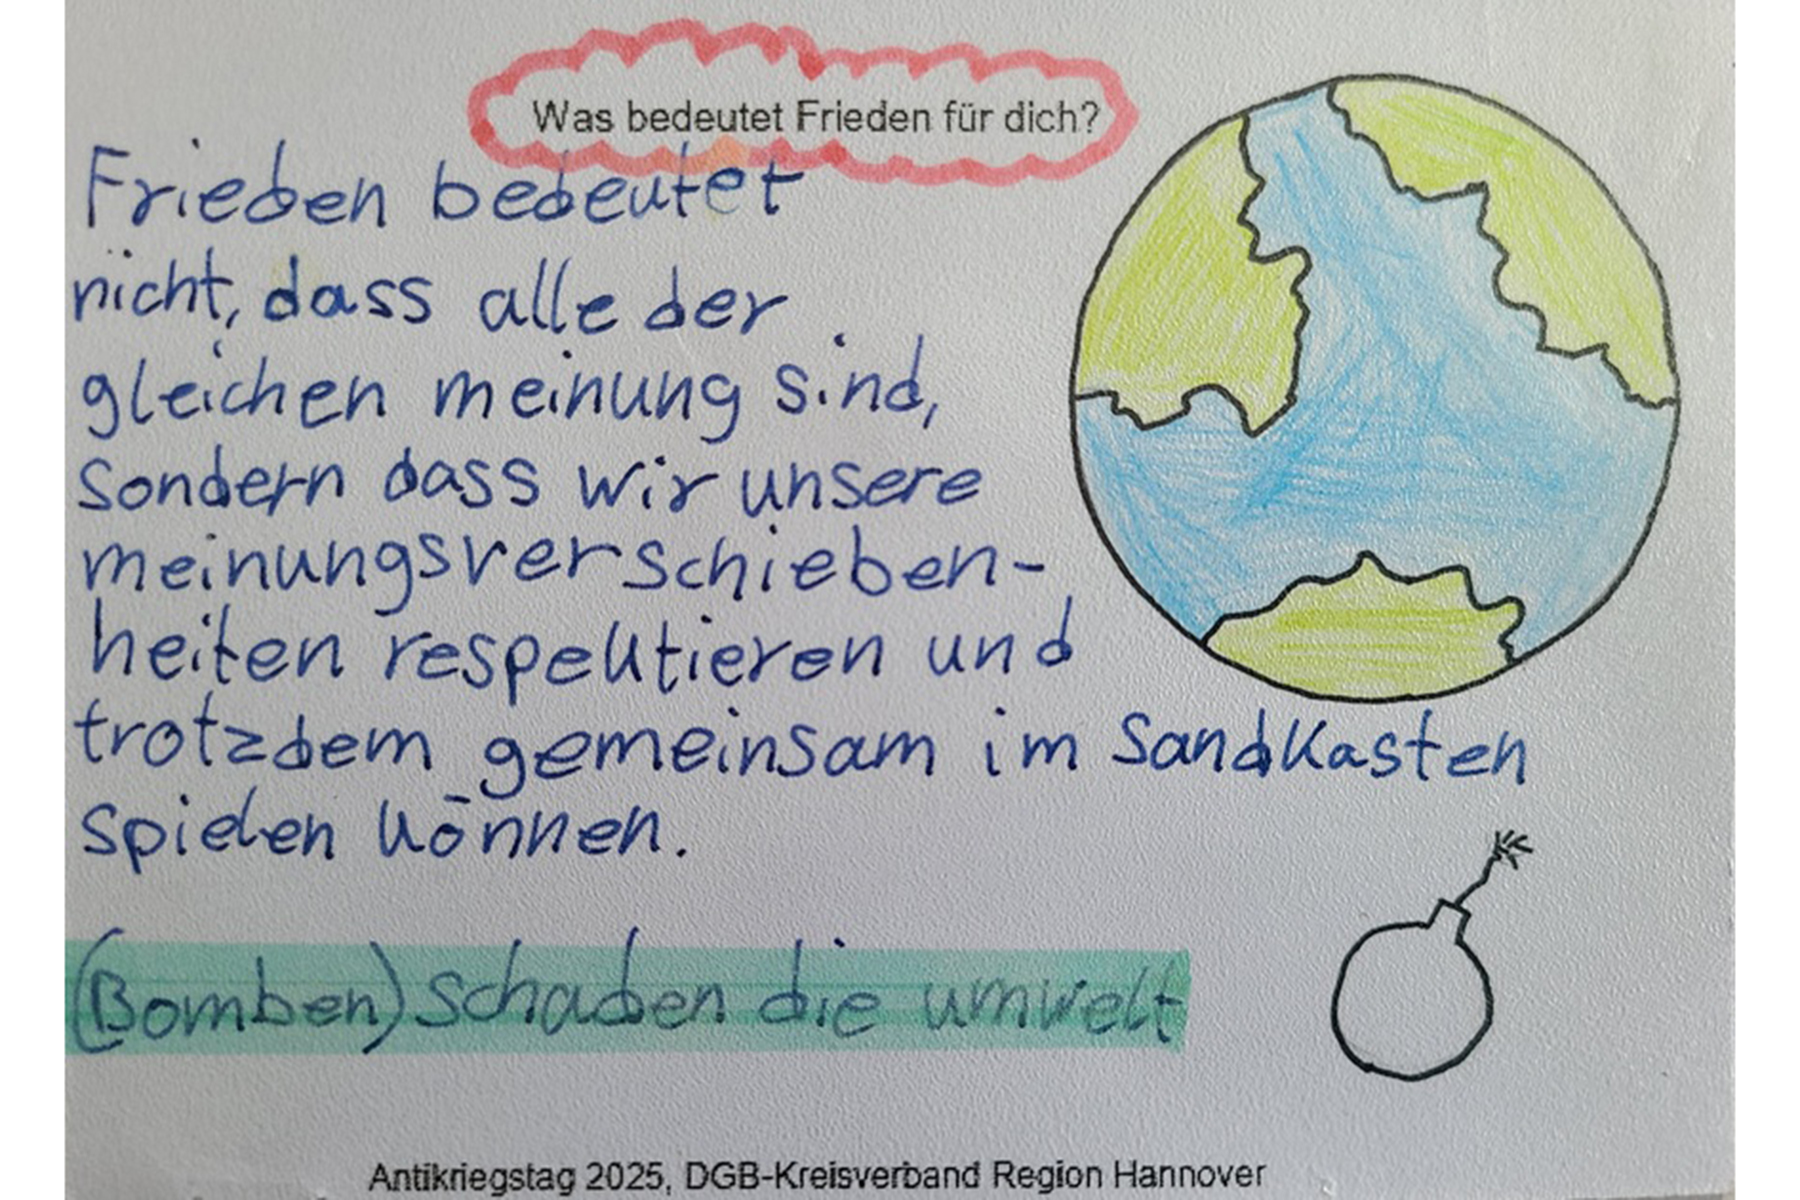 Was bedeutet Frieden für dich?
Frieden bedeutet
nicht, dass alle der
gleichen meinung sind,
sondern dass wir unsere
meinungsverschieben-
heiten respektieren und
trotzdem gemeinsam im Sandkasten
spielen können.
(Bomben) schaden die umwelt
Antikriegstag 2025, DGB-Kreisverband Region Hannover